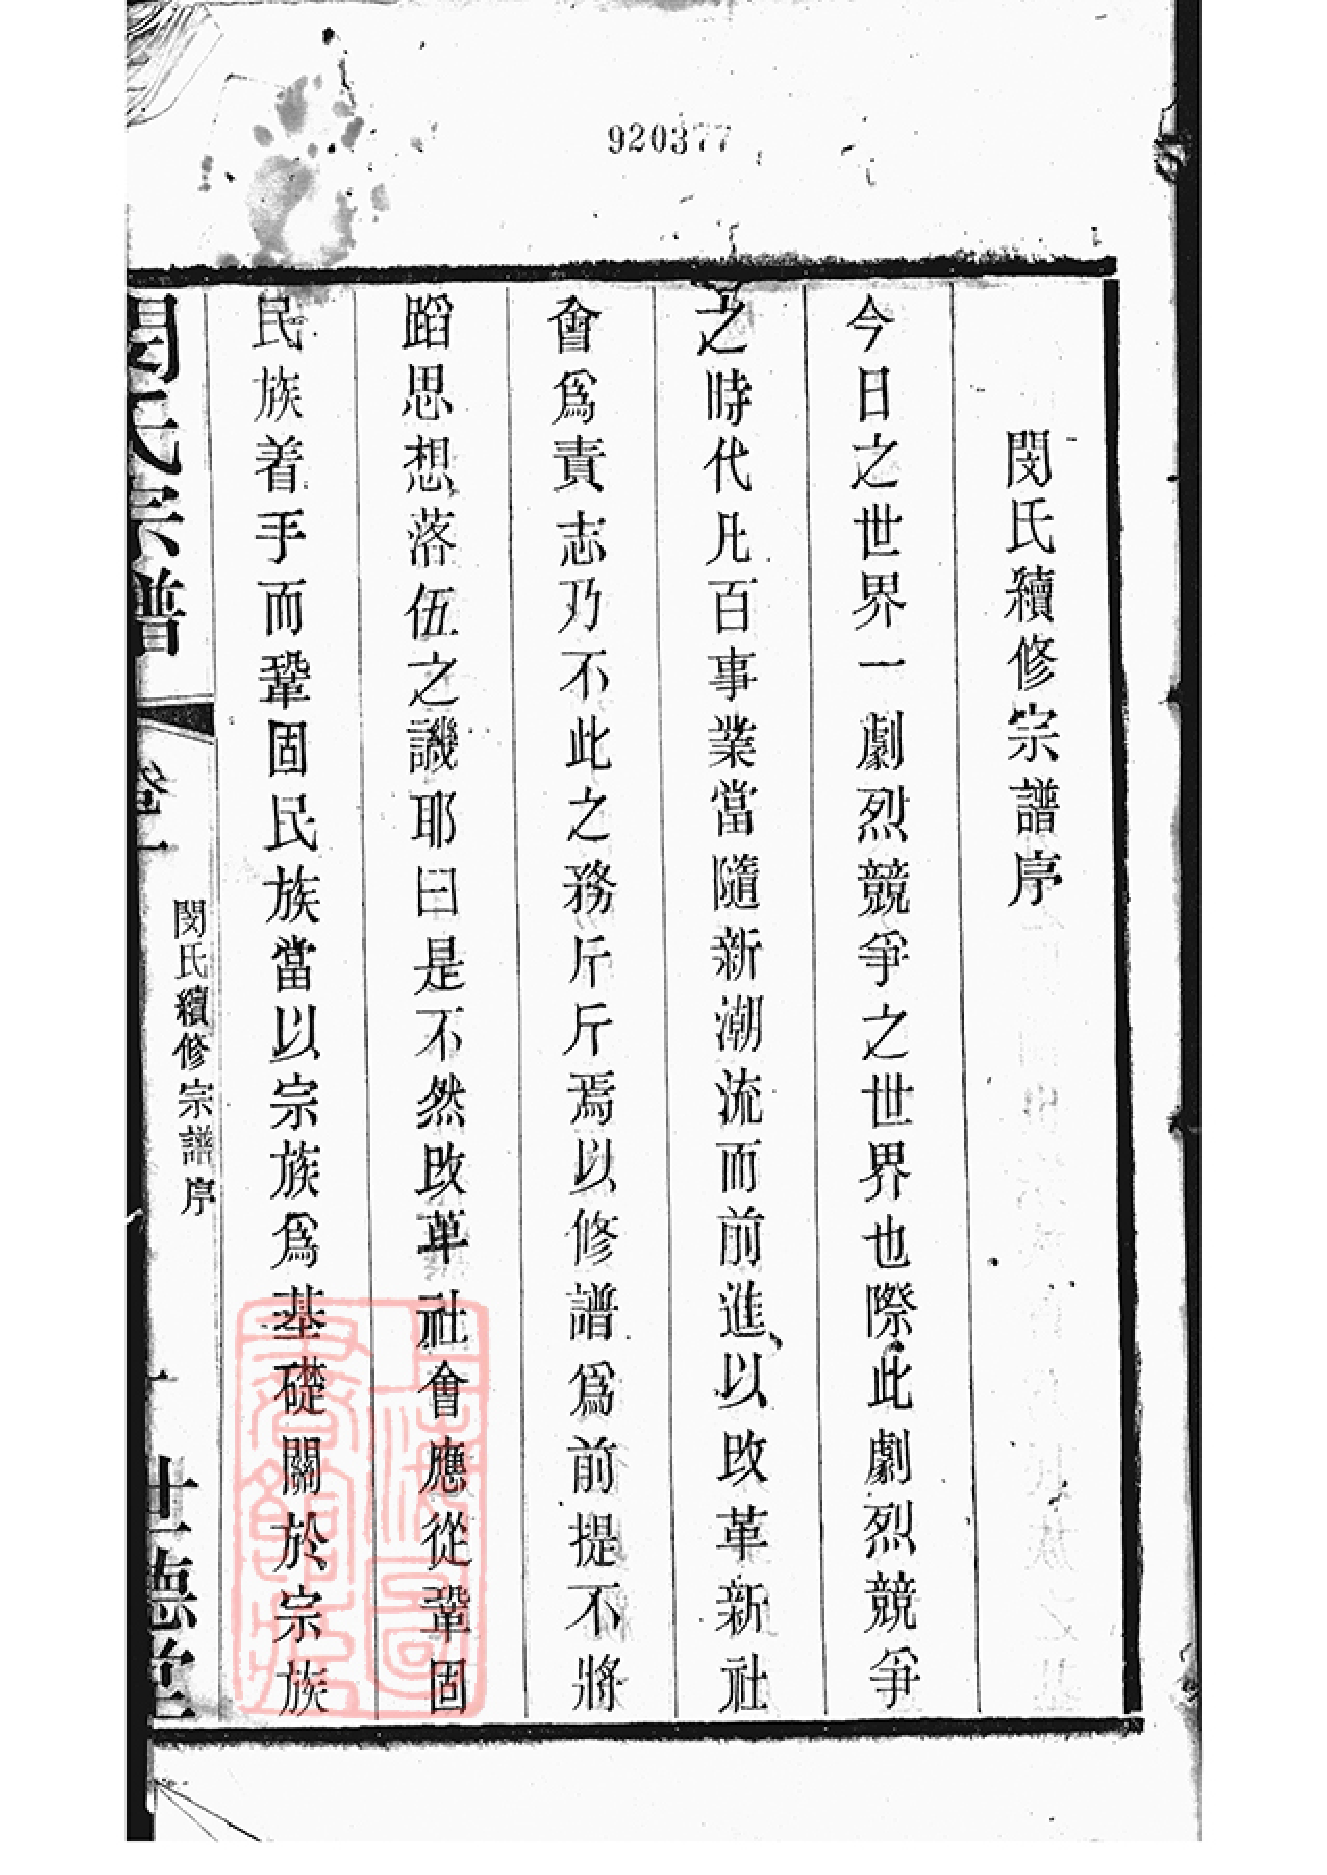 920377
閔氏續修宗譜序
今日之世界一劇烈競爭之世界也際此劇烈競爭
之時代凡百事業當隨新潮流而前進以改革新社
會爲責志乃不此之務斤斤焉以修譜爲前提不將
蹈思想落伍之譏耶曰是不然改革社會應從鞏固
民族着手而鞏固民族當以宗族爲基礎關於宗族
閔氏宗譜
卷一
閔氏續修宗譜序
一
世德堂
上海圖
書館藏